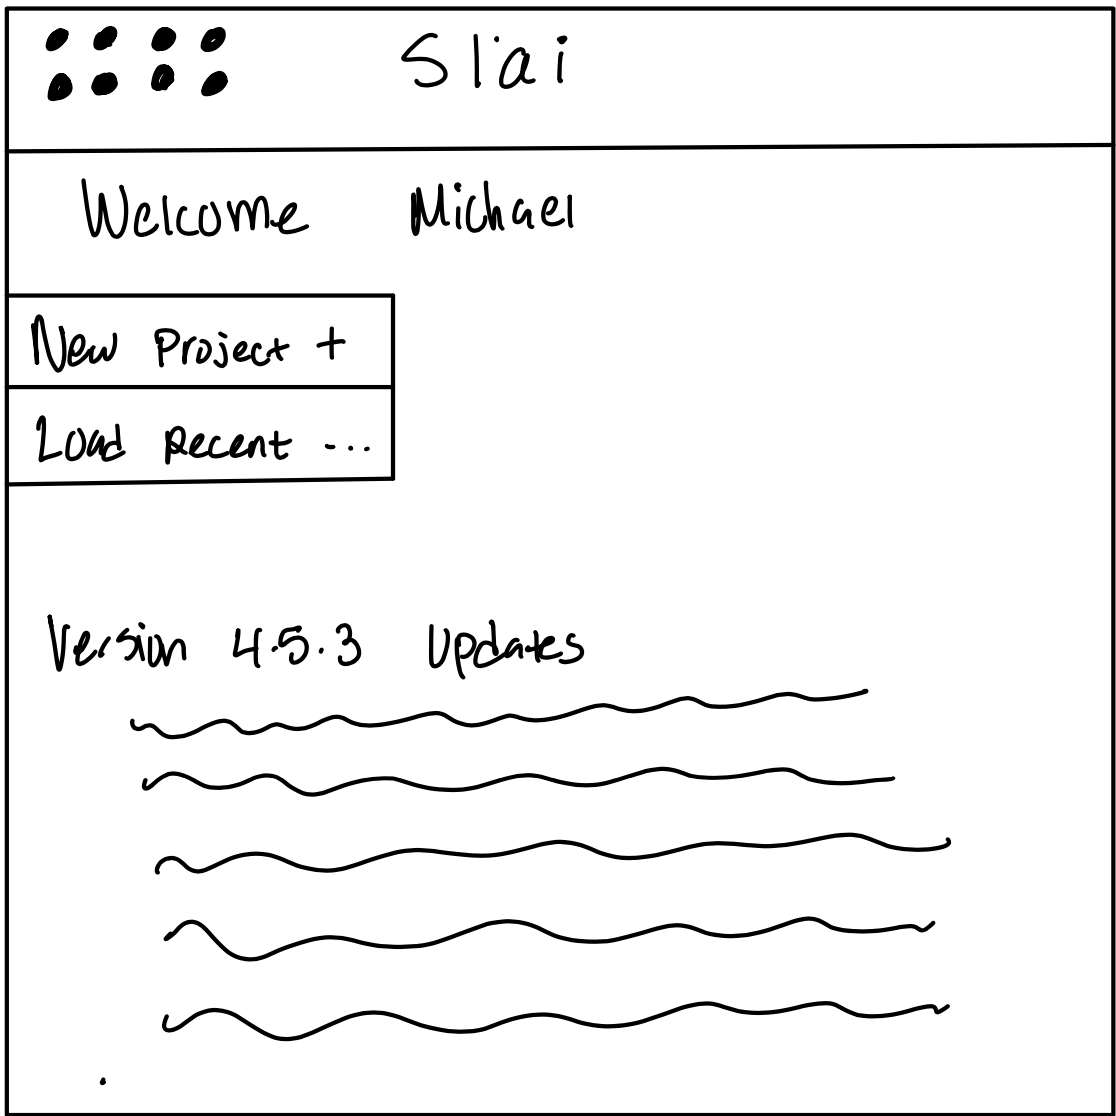 Slai
Welcome Michael
New Project +
Load Recent ...
Version 4.5.3 Updates